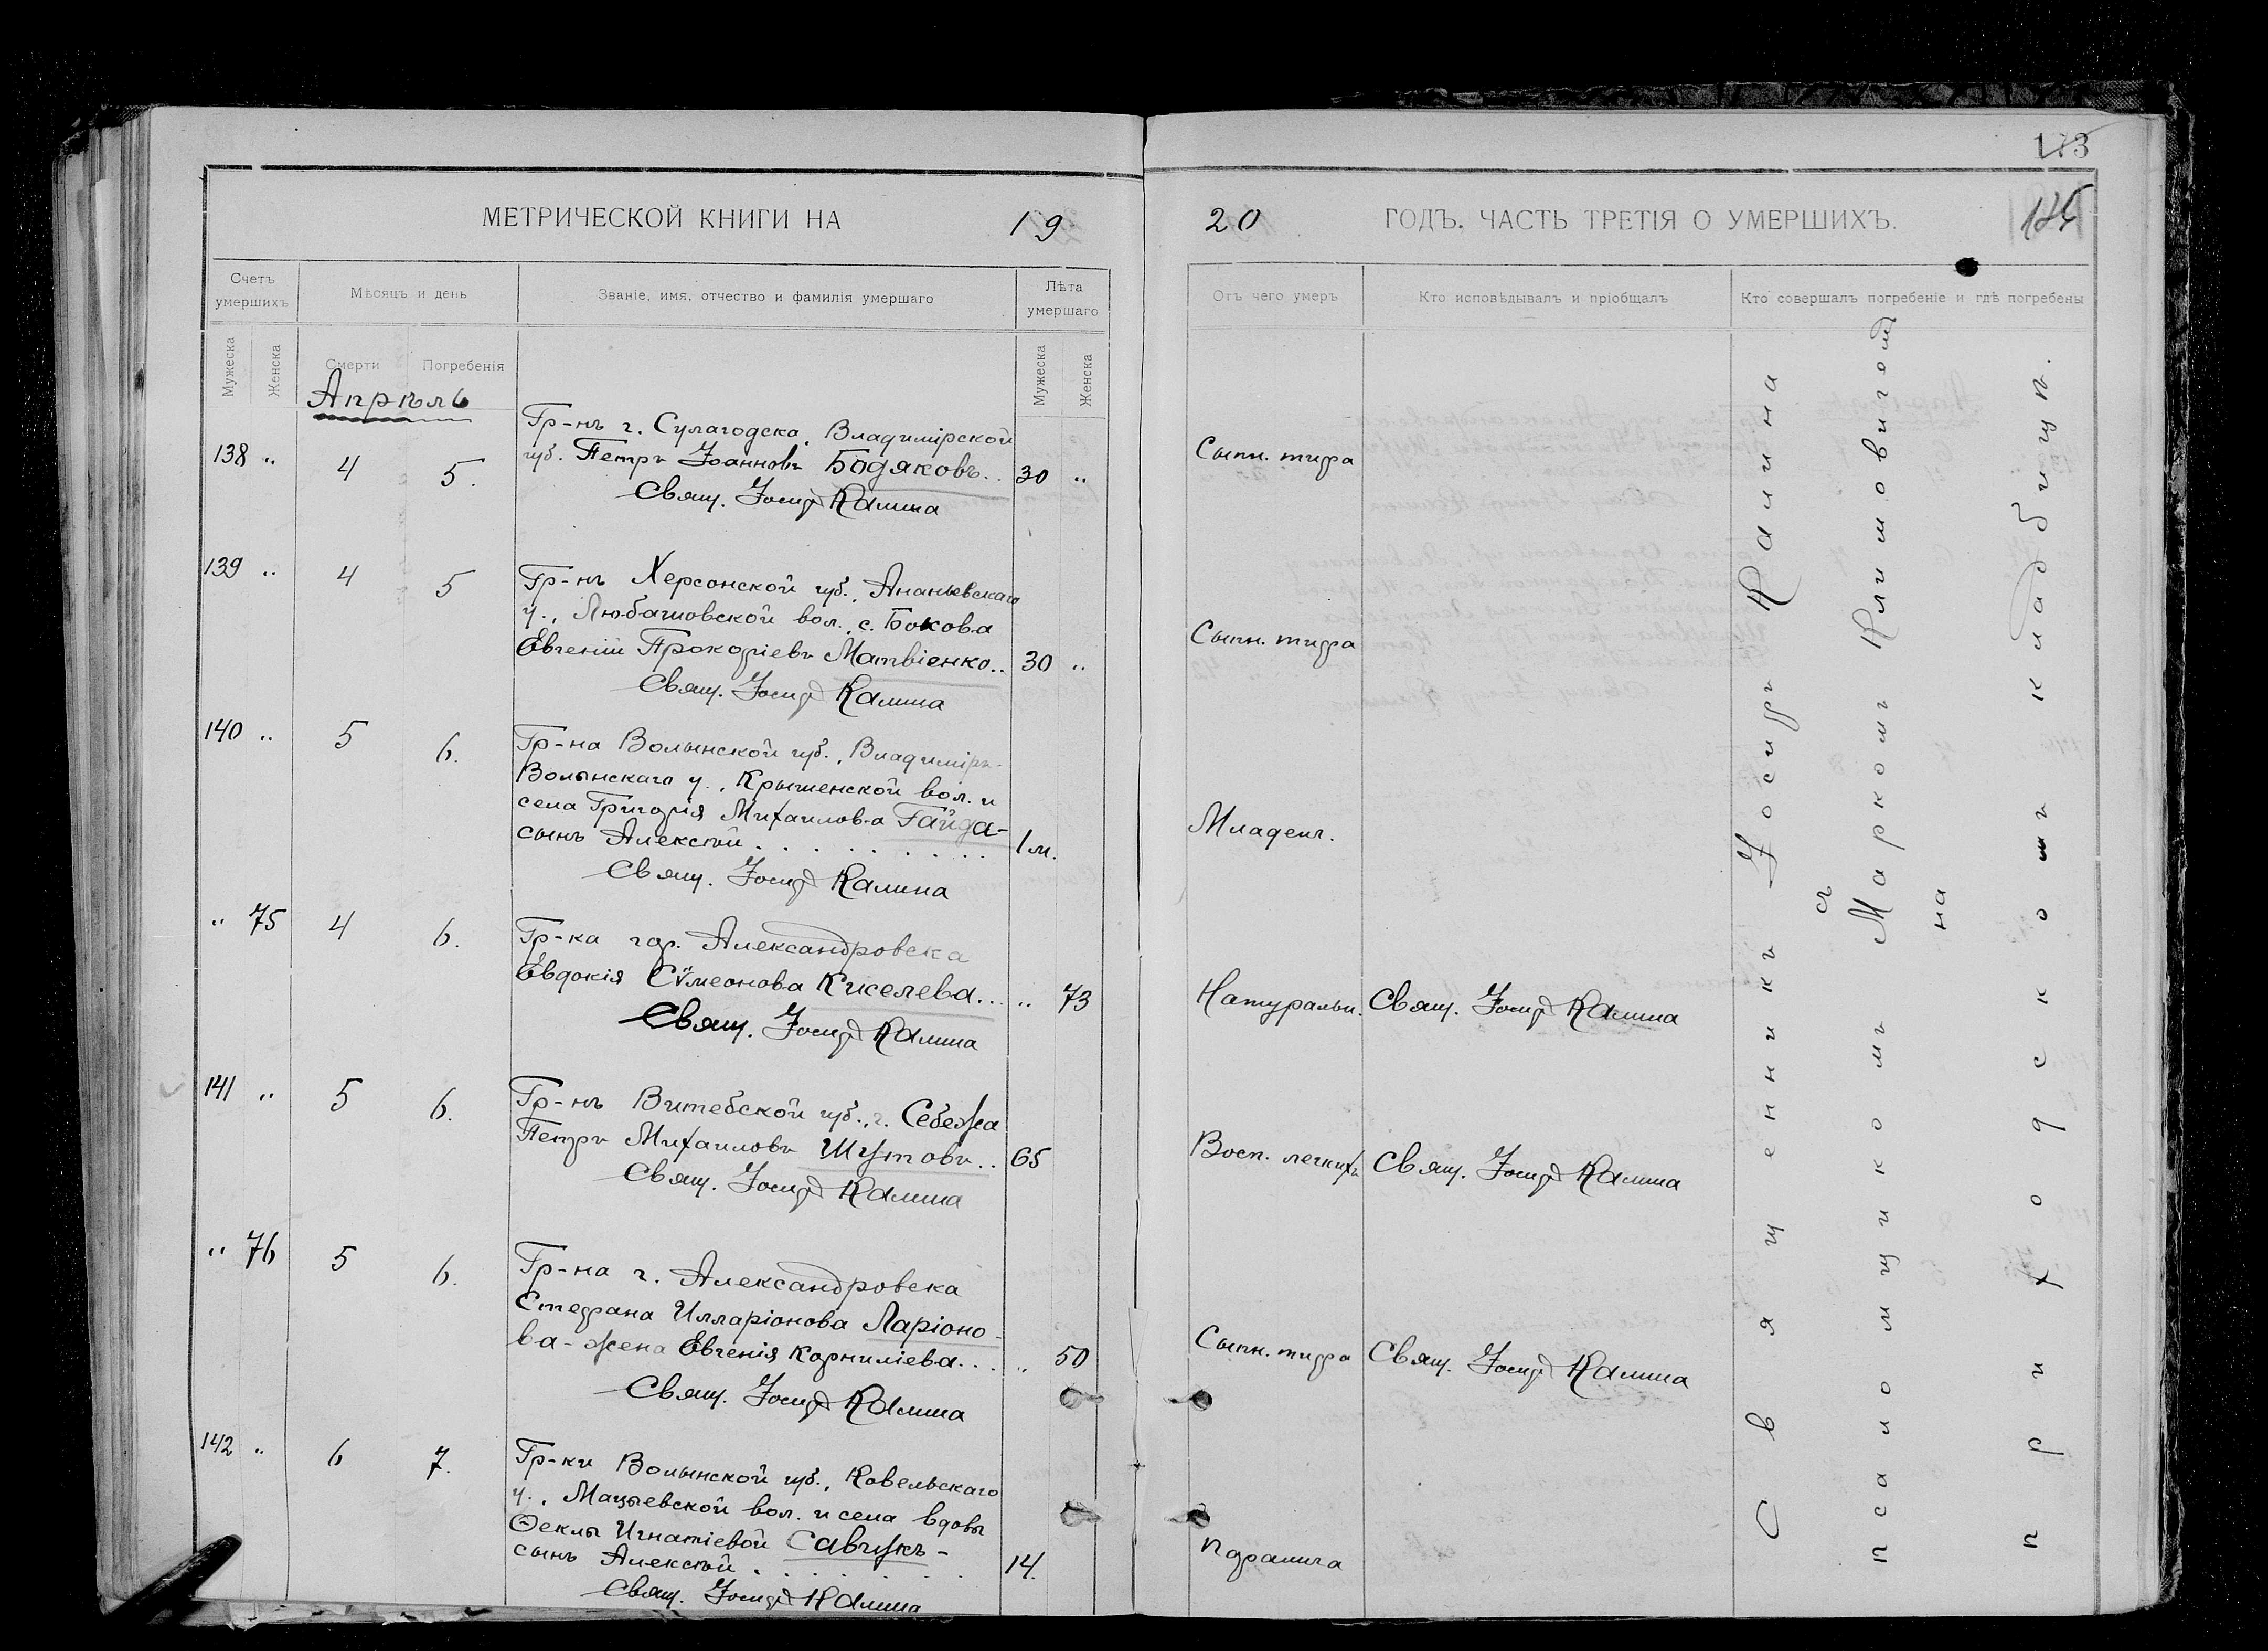 113
МЕТРИЧЕСКОЙ КНИГИ НА 19
20 ГОДЪ. ЧАСТЬ ТРЕТІЯ О УМЕРШИХЪ.
Счетъ умершихъ
Мѣсяцъ и день
Званіе, имя, отчество и фамилія умершаго
Лѣта умершаго
Мужеска
Женска
Смерти
Погребенія
Мужеска
Женска
Апрѣль
138 „ 4 5.
Гр-нъ г. Сулагодска, Владимірской
губ. Петръ Іоанновъ Бодяковъ.. 30 „
Свящ. Іосифъ Калина
139 „ 4 5
Гр-нъ Херсонской губ., Ананьевскаго
у., Любашовской вол., с. Бокова
Евгеній Прокофіевъ Матвіенко.. 30 „
Свящ. Іосифъ Калина
140 „ 5 6.
Гр-на Волынской губ., Владиміръ-
Волынскаго у., Крыменской вол. и
села Григорія Михаилов-а Гайда-
сынъ Алексѣй . . . . . . . . . 1 м.
Свящ. Іосифъ Калина
„ 75 4 6.
Гр-ка гор. Александровска
Евдокія Сѵмеонова Киселева... „ 73
Свящ. Іосифъ Калина
141 „ 5 6.
Гр-нъ Витебской губ., г. Себежа
Петръ Михаиловъ Шутовъ.. 65
Свящ. Іосифъ Калина
„ 76 5 6.
Гр-на г. Александровска
Стефана Илларіонова Ларіоно-
ва-жена Евгенія Корниліева... „ 50
Свящ. Іосифъ Калина
142 „ 6 7.
Гр-ки Волынской губ., Ковельскаго
у., Мацѣевской вол. и села вдовы
Ѳеклы Игнатіевой Савчукъ-
сынъ Алексѣй . . . . . . . 14.
Свящ. Іосифъ Калина
Отъ чего умеръ
Кто исповѣдывалъ и пріобщалъ
Кто совершалъ погребеніе и гдѣ погребены
Сыпн. тифа
Сыпн. тифа
Младенч.
Натуральн. Свящ. Іосифъ Калина
Восп. легкихъ Свящ. Іосифъ Калина
Сыпн. тифа Свящ. Іосифъ Калина
Священникъ Іосифъ Калина
съ
псаломщикомъ Маркомъ Климовичомъ
на
приходскомъ кладбищѣ.